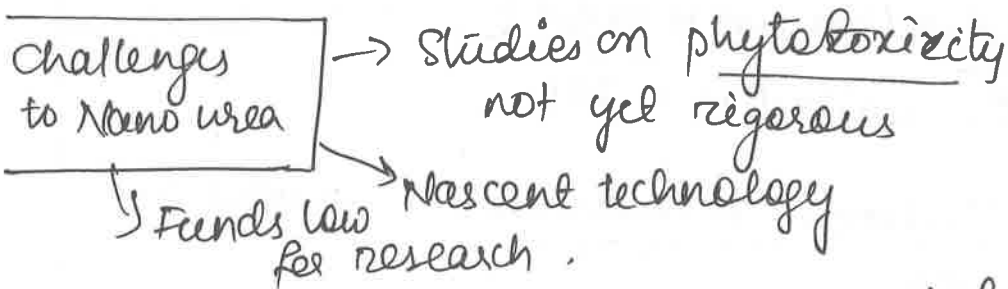 Challenges
to Nano urea
→ Studies on phytotoxicity
not yet rigorous
Nascent technology
Funds low
for research.